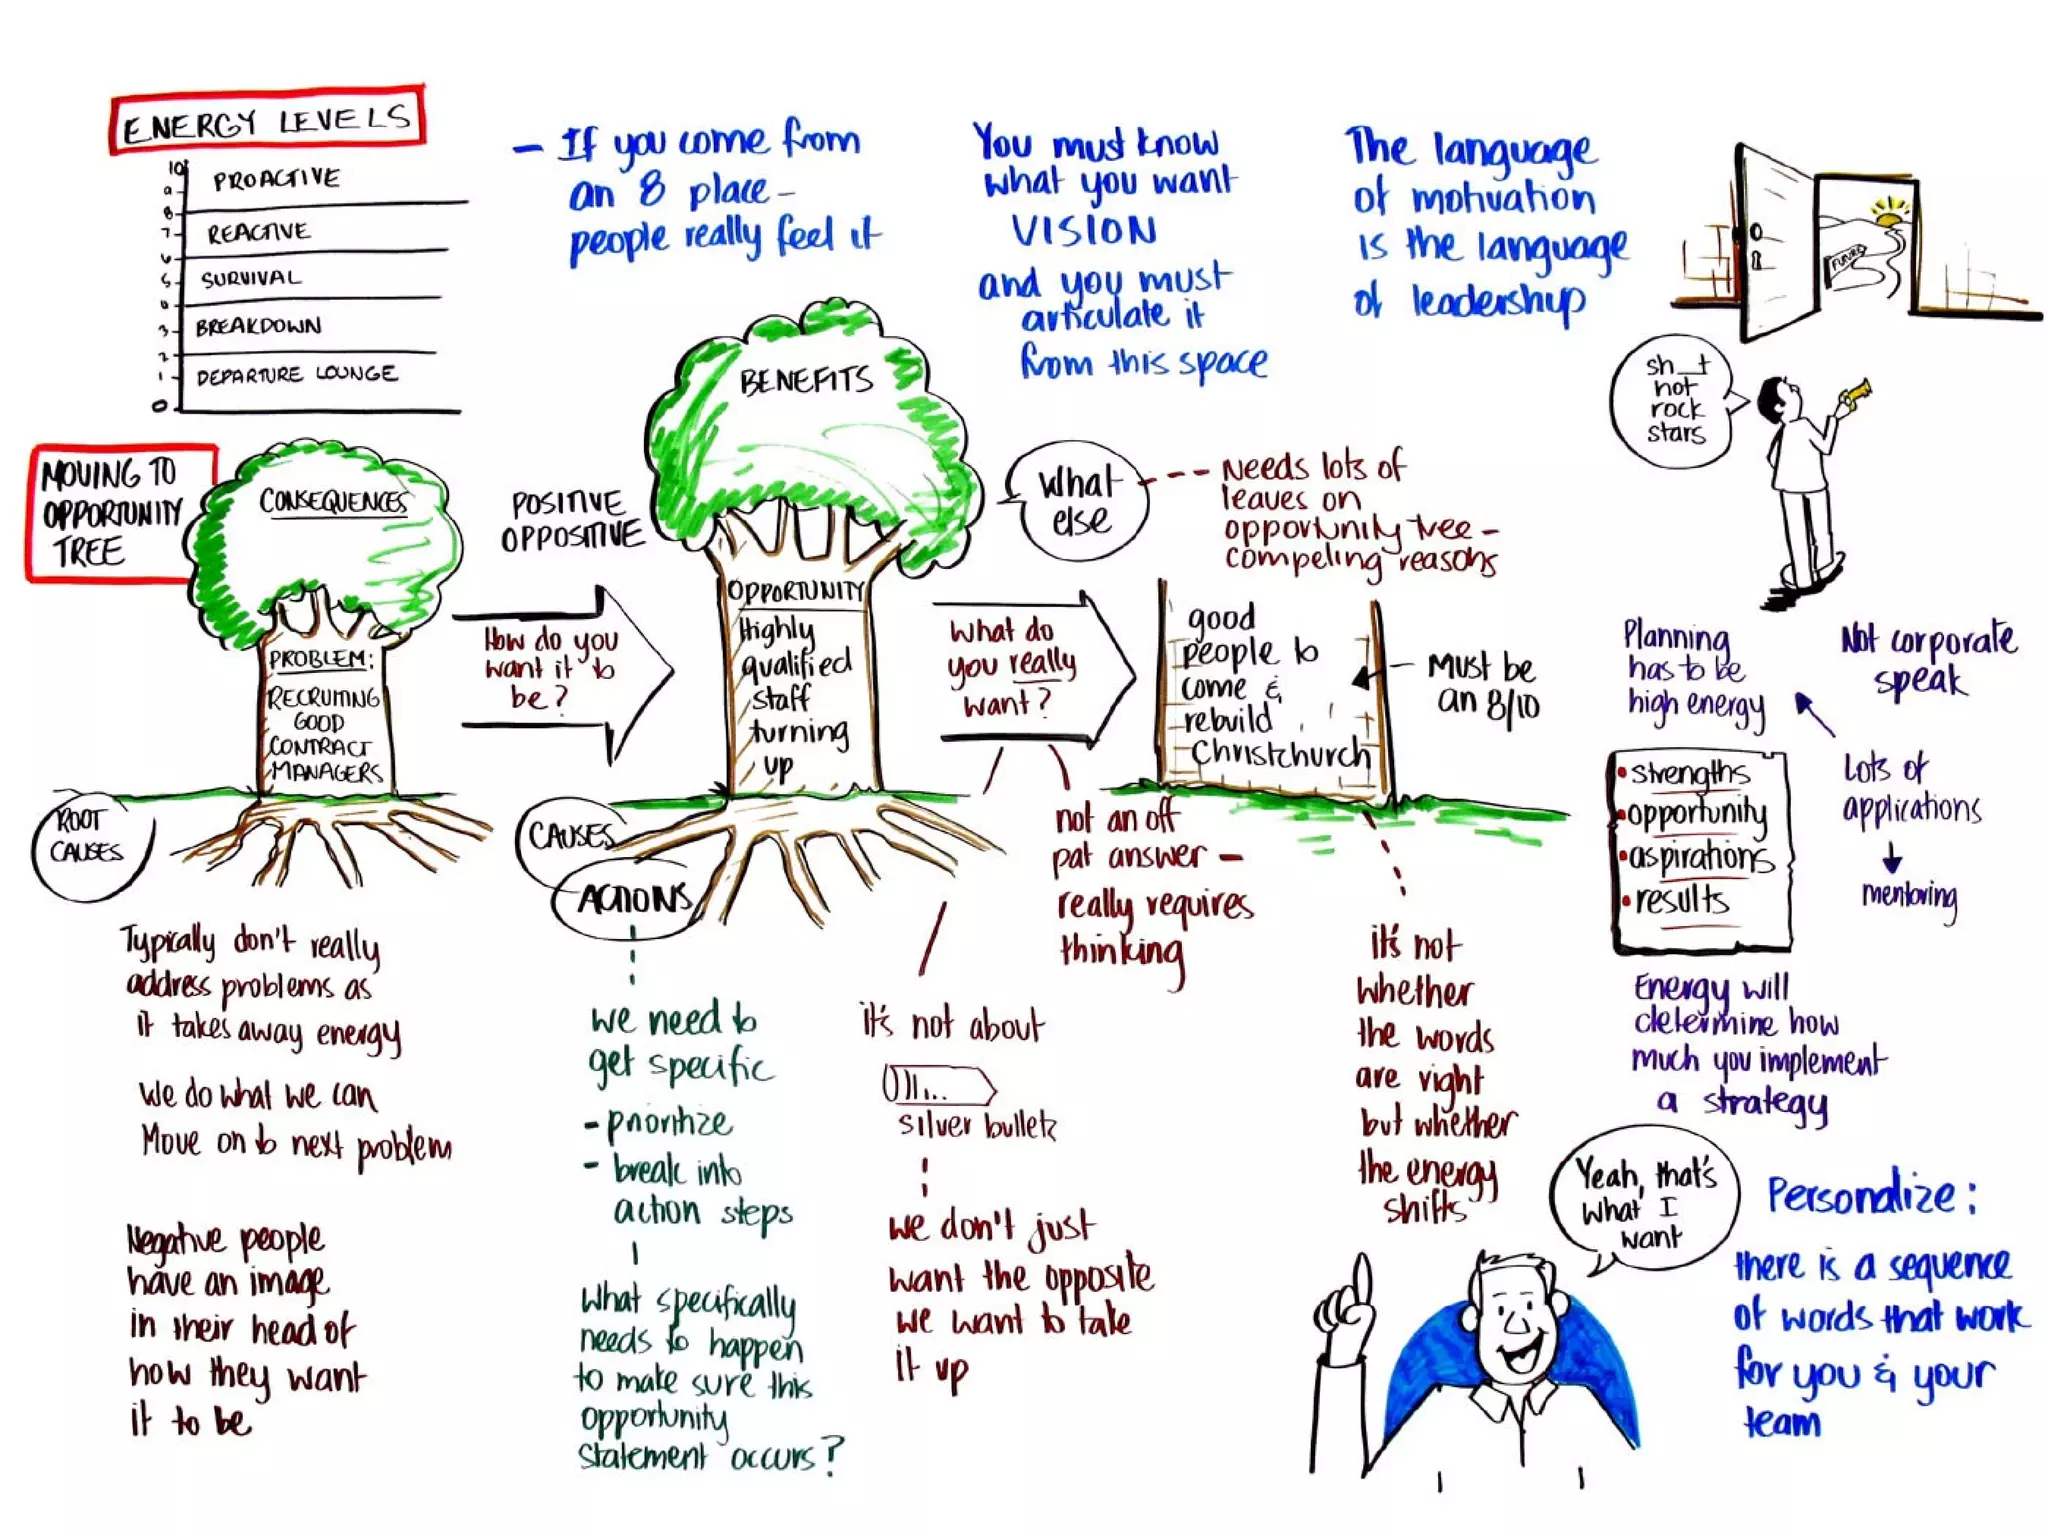 ENERGY LEVELS
10
9
8
7
6
5
4
3
2
1
0
PROACTIVE
REACTIVE
SURVIVAL
BREAKDOWN
DEPARTURE LOUNGE
- If you come from
an 8 place -
people really feel it
You must know
what you want
VISION
and you must
articulate it
from this space
The language
of motivation
is the language
of leadership
FUTURE
sh_t
hot
rock
stars
MOVING TO
OPPORTUNITY
TREE
CONSEQUENCES
PROBLEM:
RECRUITING
GOOD
CONTRACT
MANAGERS
ROOT
CAUSES
POSITIVE
OPPOSITIVE
How do you
want it to
be?
BENEFITS
OPPORTUNITY
Highly
qualified
staff
turning
up
CAUSES
ACTIONS
What
else
Needs lots of
leaves on
opportunity tree -
compeling reasons
What do
you really
want?
good
people to
come &
rebuild
Christchurch
Must be
an 8/10
Planning
has to be
high energy
Not corporate
speak
Lots of
applications
mentoring
• strengths
• opportunity
• aspirations
• results
Energy will
determine how
much you implement
a strategy
Typically don't really
address problems as
it takes away energy
We do what we can
Move on to next problem
Negative people
have an image
in their head of
how they want
it to be
we need to
get specific
- prioritize
- break into
action steps
What specifically
needs to happen
to make sure this
opportunity
statement occurs?
it's not about
silver bullets
we don't just
want the opposite
we want to take
it up
not an off
pat answer -
really requires
thinking
it's not
whether
the words
are right
but whether
the energy
shifts
Yeah, that's
what I
want
Personalize:
there is a sequence
of words that work
for you & your
team